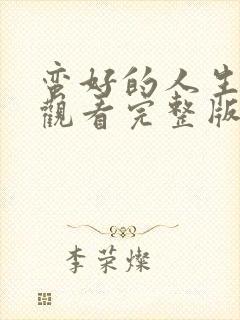 蛮好的人生
觀看完整版
李荣燦